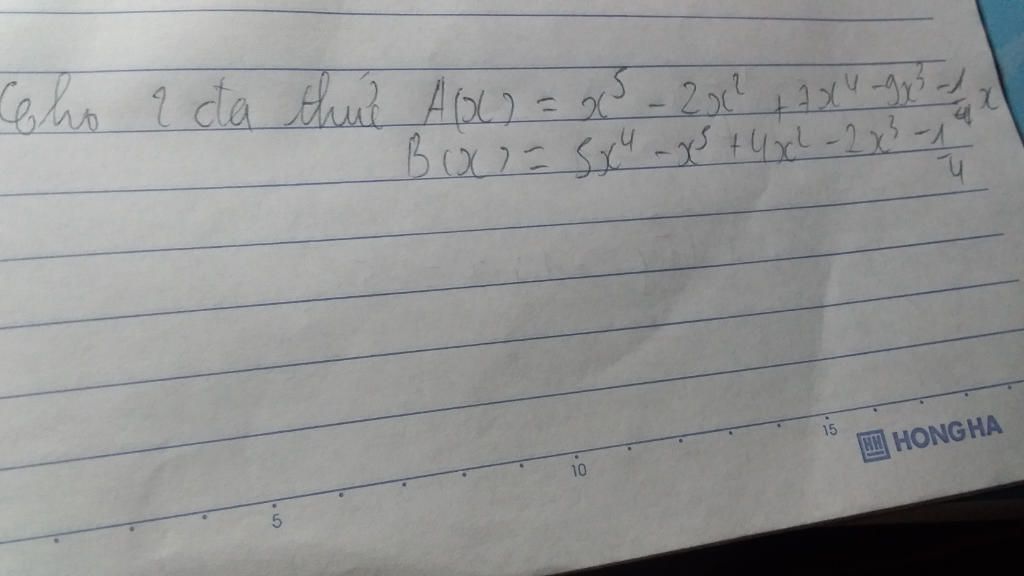 Cho 2 đa thức A(x) = x⁵ - 2x² + 7x⁴ - 9x³ - 1/4 x
B(x) = 5x⁴ - x⁵ + 4x² - 2x³ - 1/4
5 10 15 HH HONG HA